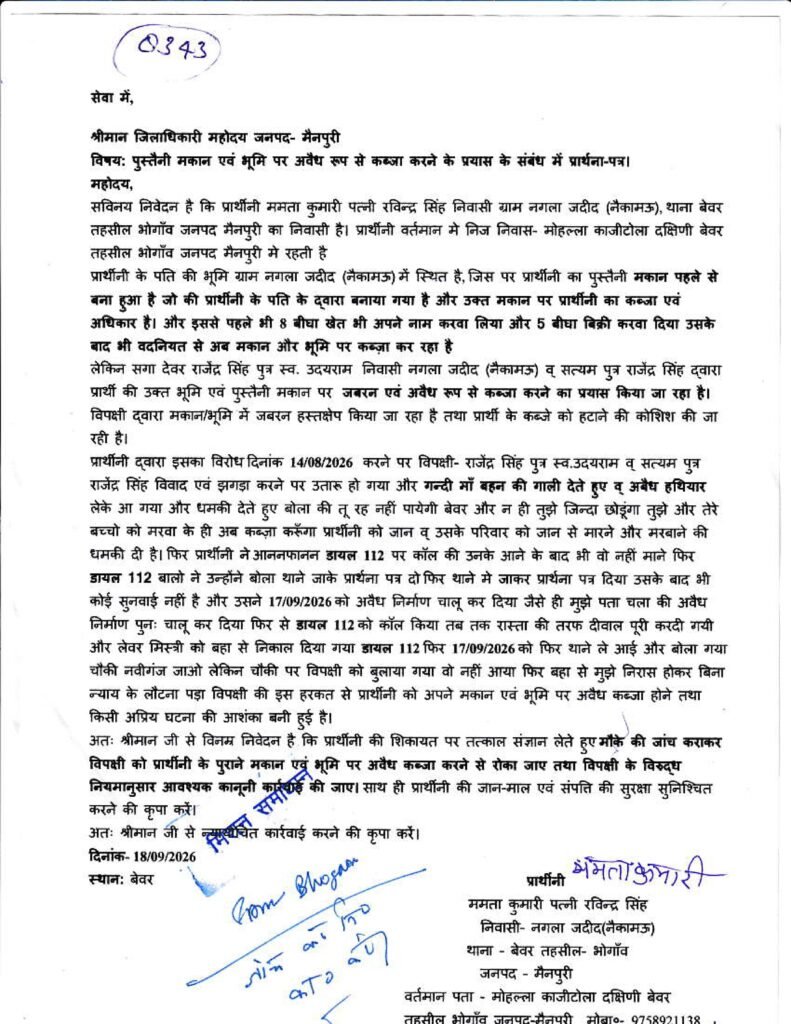 0343
सेवा में,
श्रीमान जिलाधिकारी महोदय जनपद- मैनपुरी
विषय: पुस्तैनी मकान एवं भूमि पर अवैध रूप से कब्जा करने के प्रयास के संबंध में प्रार्थना-पत्र।
महोदय,
सविनय निवेदन है कि प्रार्थीनी ममता कुमारी पत्नी रविन्द्र सिंह निवासी ग्राम नगला जदीद (नैकामऊ), थाना बेवर
तहसील भोगाँव जनपद मैनपुरी का निवासी है। प्रार्थीनी वर्तमान मे निज निवास- मोहल्ला काजीटोला दक्षिणी बेवर
तहसील भोगाँव जनपद मैनपुरी मे रहती है
प्रार्थीनी के पति की भूमि ग्राम नगला जदीद (नैकामऊ) में स्थित है, जिस पर प्रार्थीनी का पुस्तैनी मकान पहले से
बना हुआ है जो की प्रार्थीनी के पति के द्वारा बनाया गया है और उक्त मकान पर प्रार्थीनी का कब्जा एवं
अधिकार है। और इससे पहले भी 8 बीघा खेत भी अपने नाम करवा लिया और 5 बीघा बिक्री करवा दिया उसके
बाद भी वदनियत से अब मकान और भूमि पर कब्ज़ा कर रहा है
लेकिन सगा देवर राजेंद्र सिंह पुत्र स्व. उदयराम निवासी नगला जदीद (नैकामऊ) व् सत्यम पुत्र राजेंद्र सिंह द्वारा
प्रार्थी की उक्त भूमि एवं पुस्तैनी मकान पर जबरन एवं अवैध रूप से कब्जा करने का प्रयास किया जा रहा है।
विपक्षी द्वारा मकान/भूमि में जबरन हस्तक्षेप किया जा रहा है तथा प्रार्थी के कब्जे को हटाने की कोशिश की जा
रही है।
प्रार्थीनी द्वारा इसका विरोध दिनांक 14/08/2026 करने पर विपक्षी- राजेंद्र सिंह पुत्र स्व.उदयराम व् सत्यम पुत्र
राजेंद्र सिंह विवाद एवं झगड़ा करने पर उतारू हो गया और गन्दी माँ बहन की गाली देते हुए व् अबैध हथियार
लेके आ गया और धमकी देते हुए बोला की तू रह नहीं पायेगी बेवर और न ही तुझे जिन्दा छोडूंगा तुझे और तेरे
बच्चो को मरवा के ही अब कब्जा करूँगा प्रार्थीनी को जान व् उसके परिवार को जान से मारने और मरबाने की
धमकी दी है। फिर प्रार्थीनी ने आननफानन डायल 112 पर कॉल की उनके आने के बाद भी वो नहीं माने फिर
डायल 112 बालो ने उन्होंने बोला थाने जाके प्रार्थना पत्र दो फिर थाने मे जाकर प्रार्थना पत्र दिया उसके बाद भी
कोई सुनवाई नहीं है और उसने 17/09/2026 को अवैध निर्माण चालू कर दिया जैसे ही मुझे पता चला की अवैध
निर्माण पुनः चालू कर दिया फिर से डायल 112 को कॉल किया तब तक रास्ता की तरफ दीवाल पूरी करदी गयी
और लेवर मिस्त्री को बहा से निकाल दिया गया डायल 112 फिर 17/09/2026 को फिर थाने ले आई और बोला गया
चौकी नवीगंज जाओ लेकिन चौकी पर विपक्षी को बुलाया गया वो नहीं आया फिर बहा से मुझे निरास होकर बिना
न्याय के लौटना पड़ा विपक्षी की इस हरकत से प्रार्थीनी को अपने मकान एवं भूमि पर अवैध कब्जा होने तथा
किसी अप्रिय घटना की आशंका बनी हुई है।
अतः श्रीमान जी से विनम्र निवेदन है कि प्रार्थीनी की शिकायत पर तत्काल संज्ञान लेते हुए मौके की जांच कराकर
विपक्षी को प्रार्थीनी के पुराने मकान एवं भूमि पर अवैध कब्जा करने से रोका जाए तथा विपक्षी के विरुद्ध
नियमानुसार आवश्यक कानूनी कार्रवाई की जाए। साथ ही प्रार्थीनी की जान-माल एवं संपत्ति की सुरक्षा सुनिश्चित
करने की कृपा करें।
अतः श्रीमान जी से न्यायोचित कार्रवाई करने की कृपा करें।
मिशन समाधान
दिनांक- 18/09/2026
स्थान: बेवर
Bhogaon
प्रार्थीनी ममता कुमारी
ममता कुमारी पत्नी रविन्द्र सिंह
निवासी- नगला जदीद(नैकामऊ)
थाना - बेवर तहसील- भोगाँव
जनपद - मैनपुरी
वर्तमान पता - मोहल्ला काजीटोला दक्षिणी बेवर
तहसील भोगाँव जनपद-मैनपुरी मोबा०- 9758921138